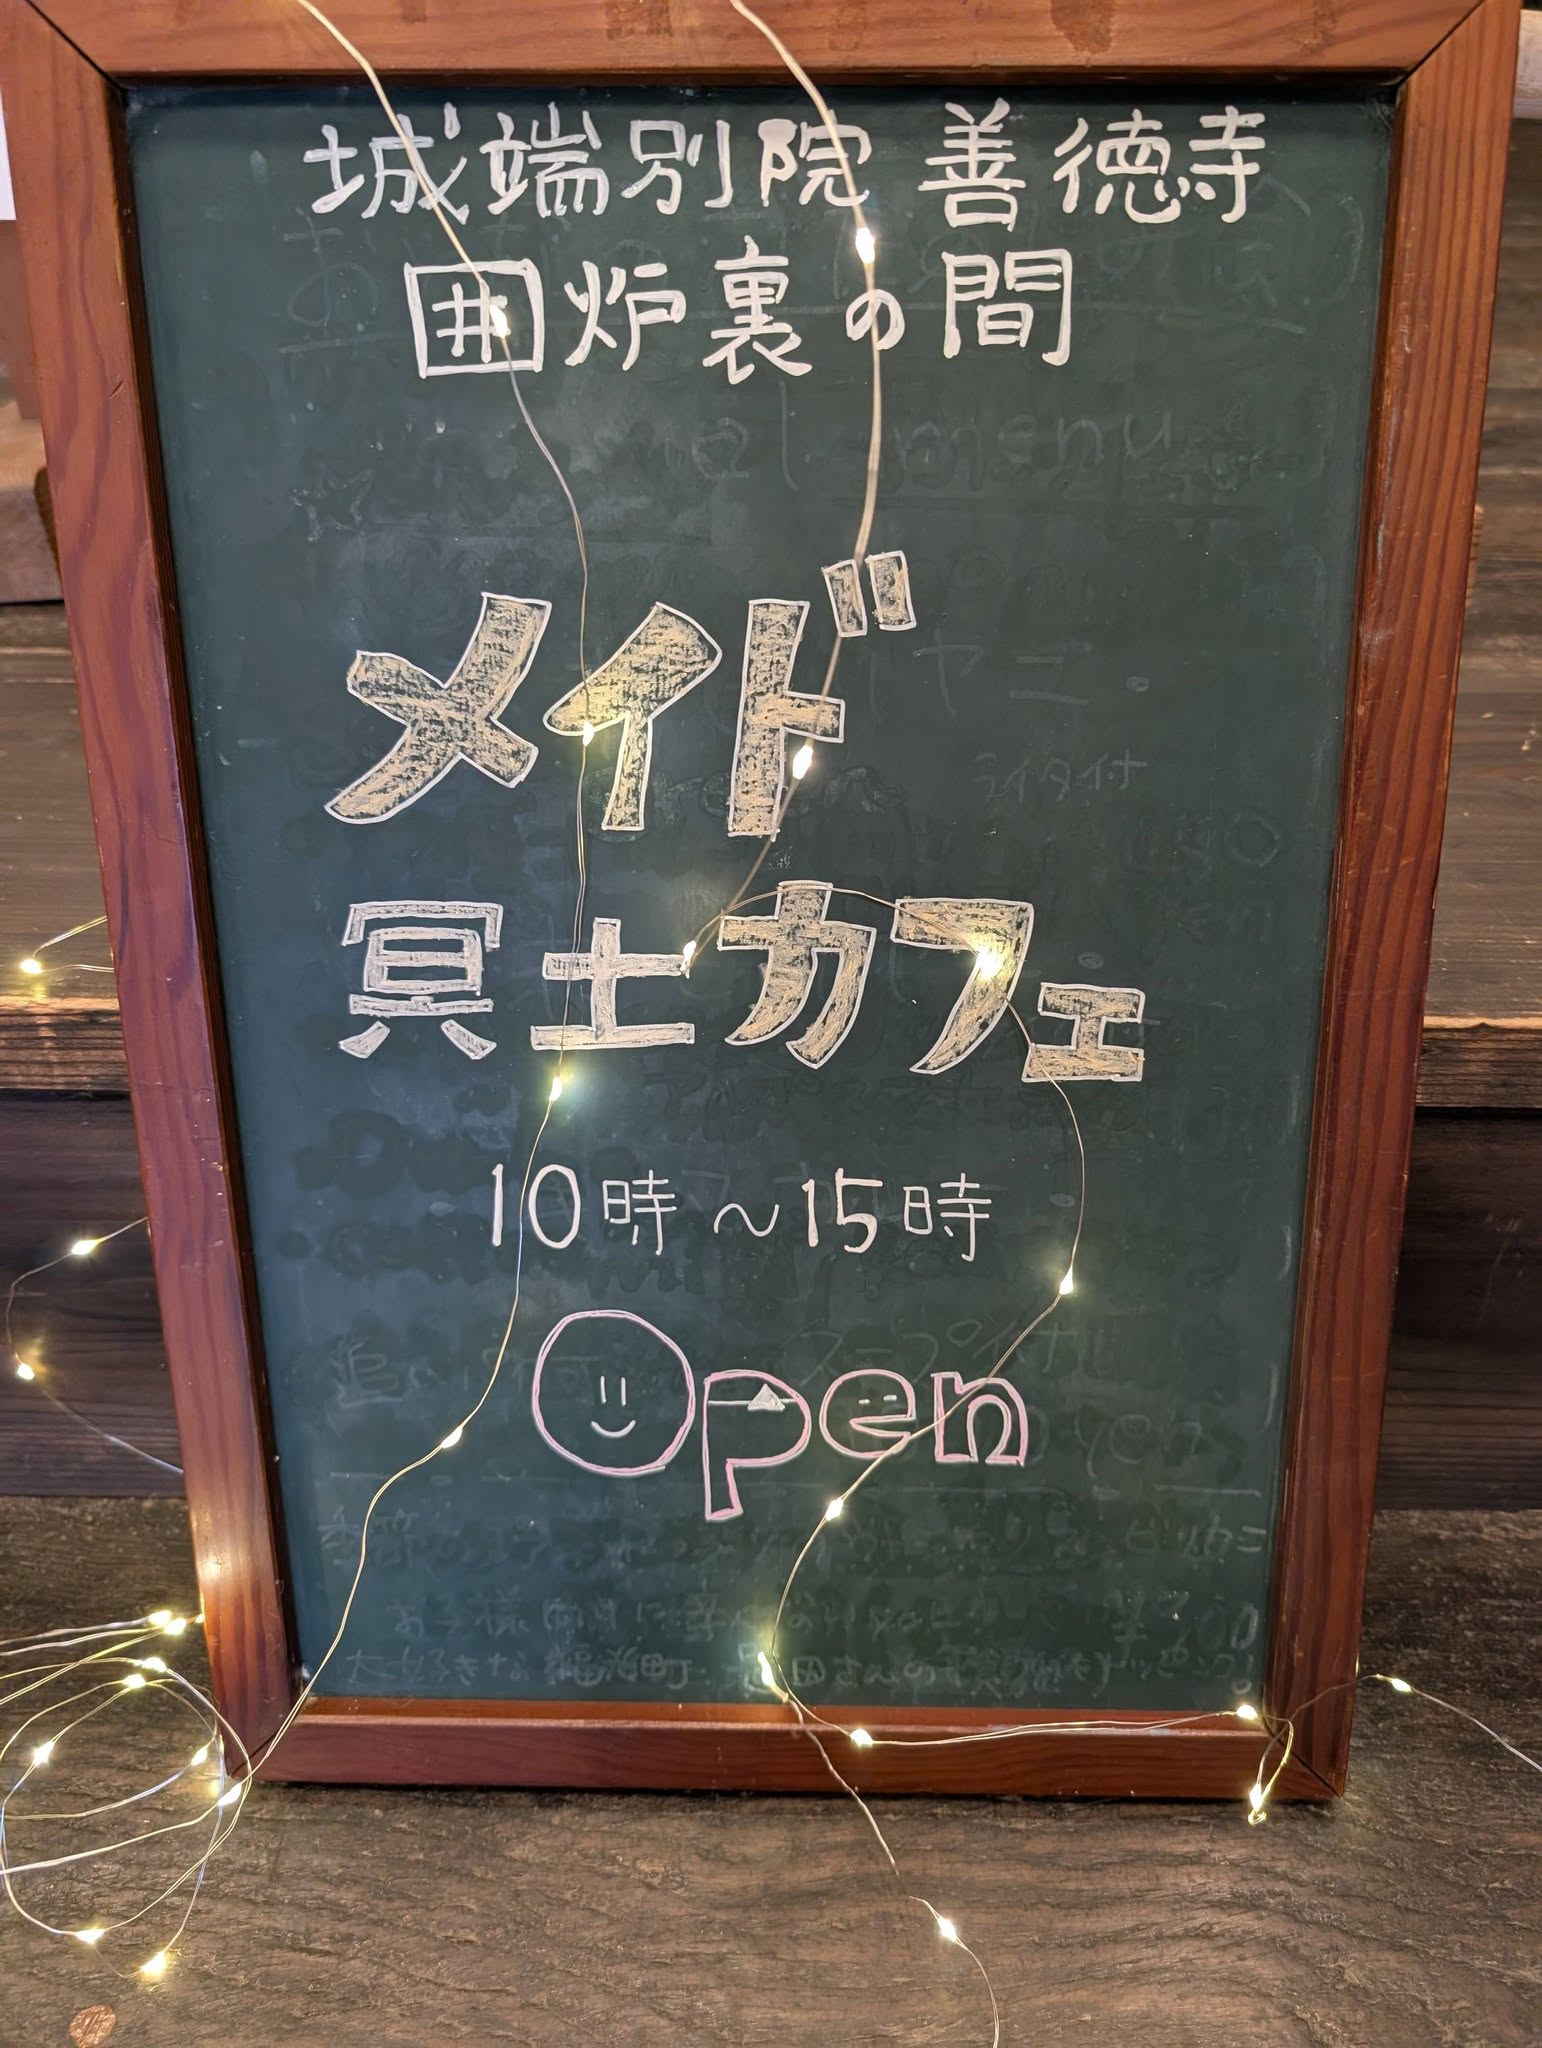 城端別院 善徳寺
囲炉裏の間
メイド
冥土カフェ
10時～15時
Open